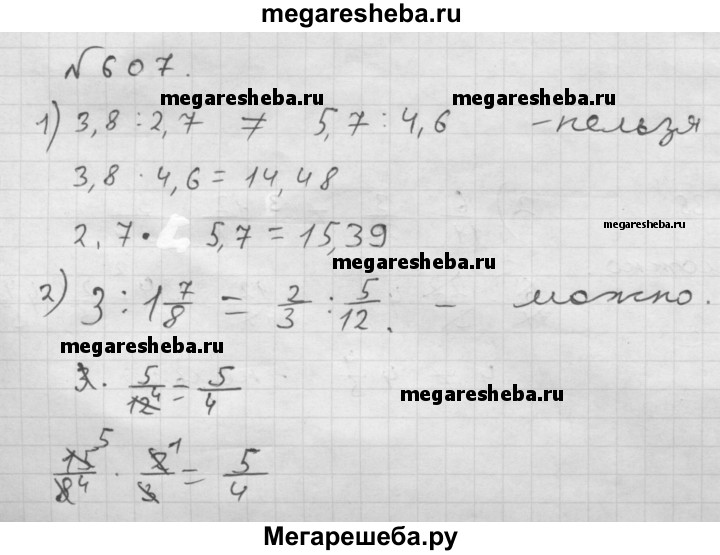 megaresheba.ru
№607.
megaresheba.ru megaresheba.ru
1) 3,8 : 2,7 ≠ 5,7 : 4,6 - нельзя
3,8 · 4,6 = 14,48
megaresheba.ru
2,7 · 5,7 = 15,39
megaresheba.ru
2) 3 : 1 7/8 = 2/3 : 5/12. - можно.
megaresheba.ru
3 · 5/12 4 = 5/4
megaresheba.ru
15 5/8 4 · 2 1/3 = 5/4
Мегарешеба.ру